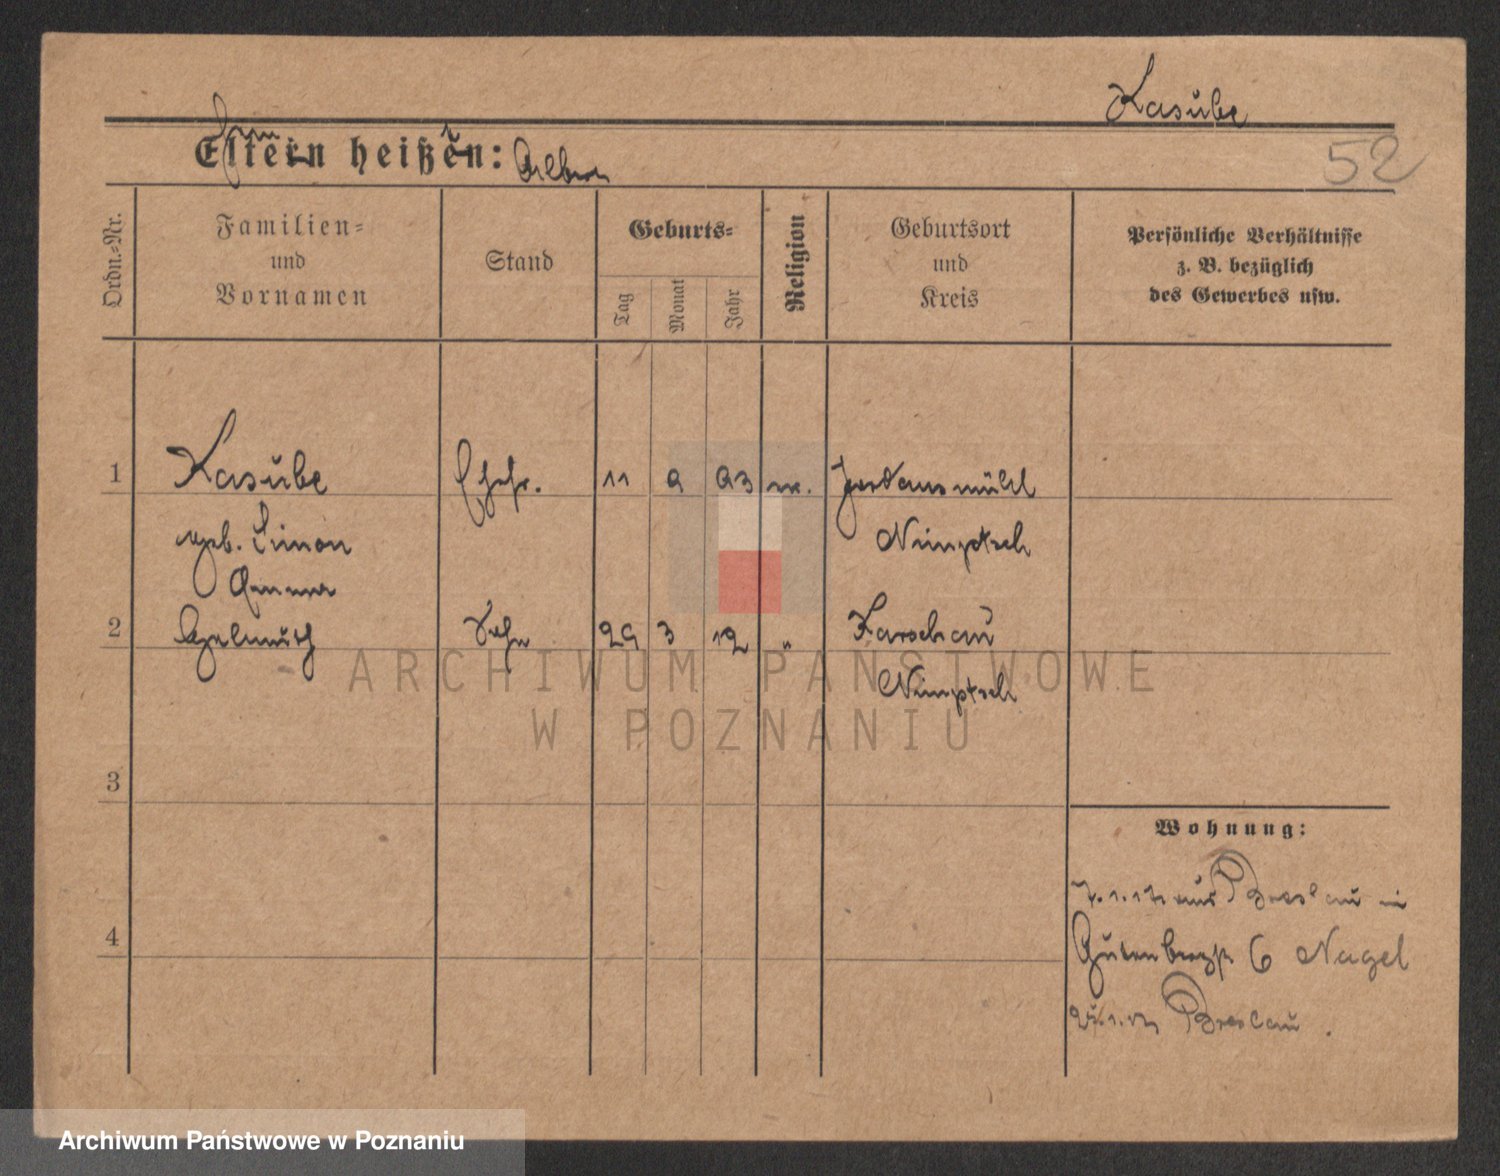 Kasube
52
Eltern heißen:
Ordn.-Nr.
Familien-
und
Vornamen
Stand
Geburts-
Tag
Monat
Jahr
Religion
Geburtsort
und
Kreis
Persönliche Verhältnisse
z. B. bezüglich
des Gewerbes usw.
1
Kasube
Ehefr.
11
9
93
Jordansmühl
geb. Simon
Nimptsch
2
Helmuth
Sohn
29
3
12
"
Karschau
Nimptsch
3
Wohnung:
aus Breslau in
4
Gutenbergstr 6 Nagel
Breslau.
ARCHIWUM PAŃSTWOWE
W POZNANIU
Archiwum Państwowe w Poznaniu